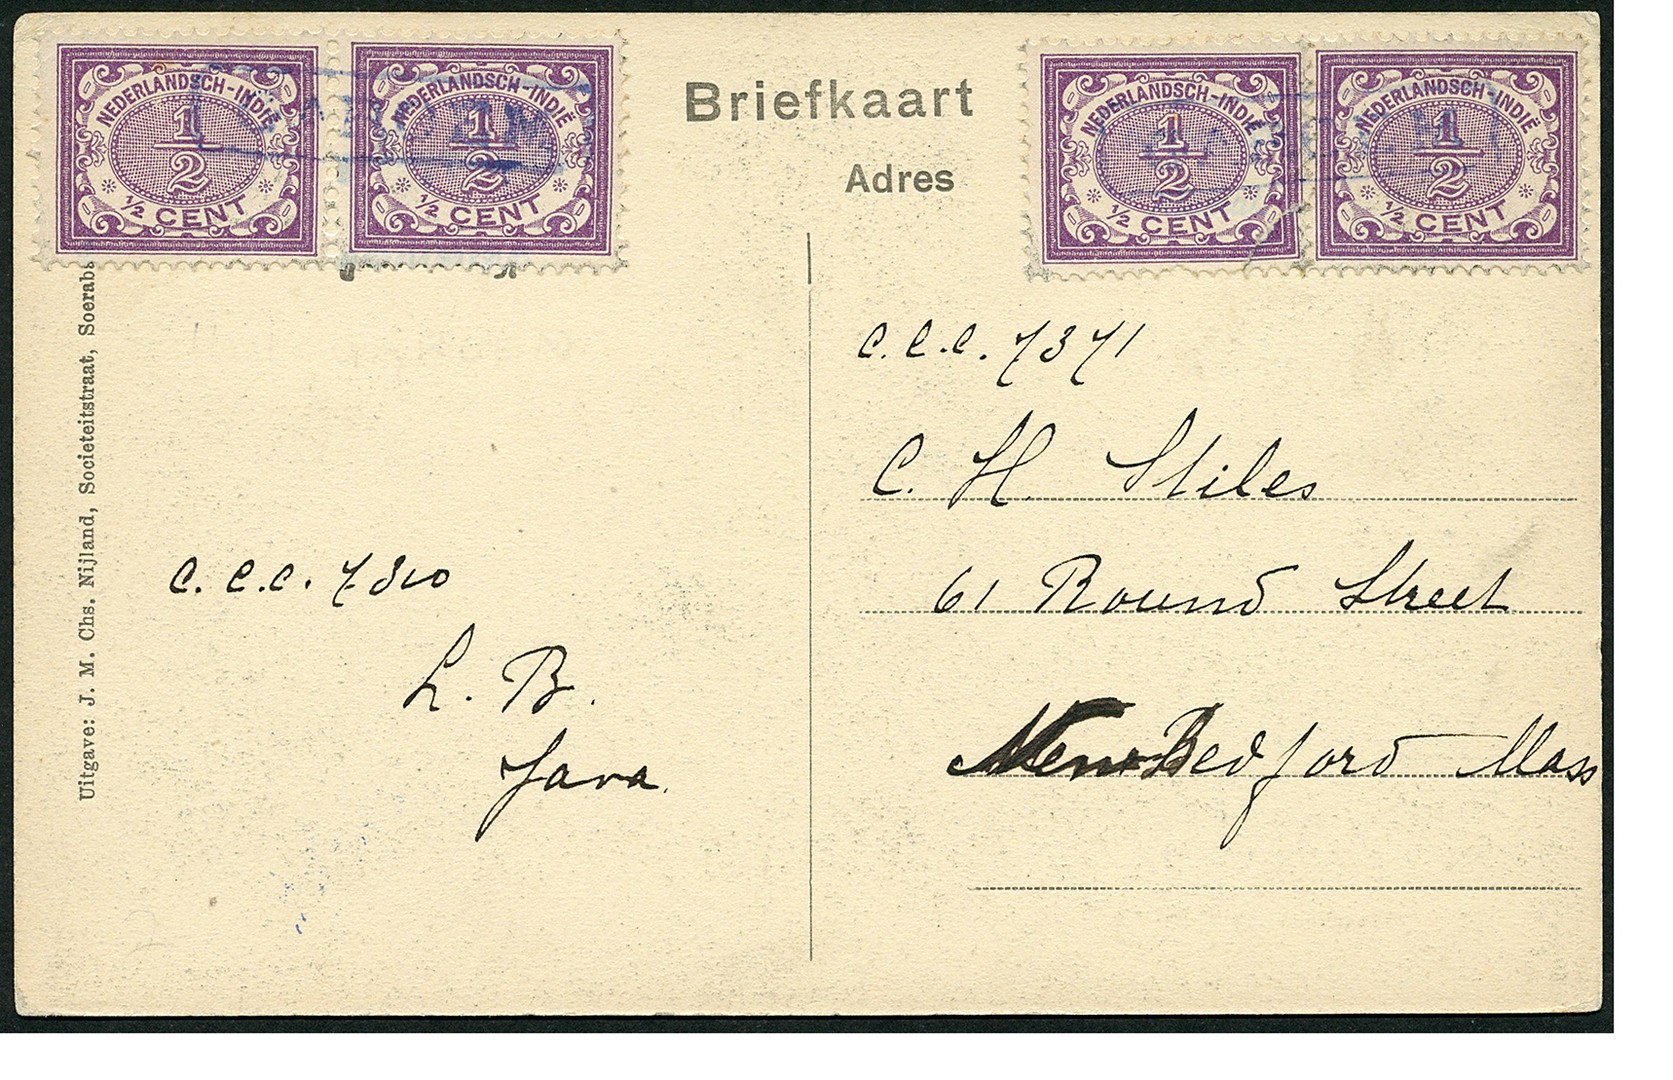 NEDERLANDSCH-INDIË
1/2
1/2 CENT
NEDERLANDSCH-INDIË
1/2
1/2 CENT
Briefkaart
Adres
NEDERLANDSCH-INDIË
1/2
1/2 CENT
NEDERLANDSCH-INDIË
1/2
1/2 CENT
Uitgave: J. M. Chs. Nijland, Societeitstraat, Soerabs
C. C. C. 7310
L. B.
Java.
C. C. C. 7371
C. H. Stiles
61 Round Street
New Bedford Mass